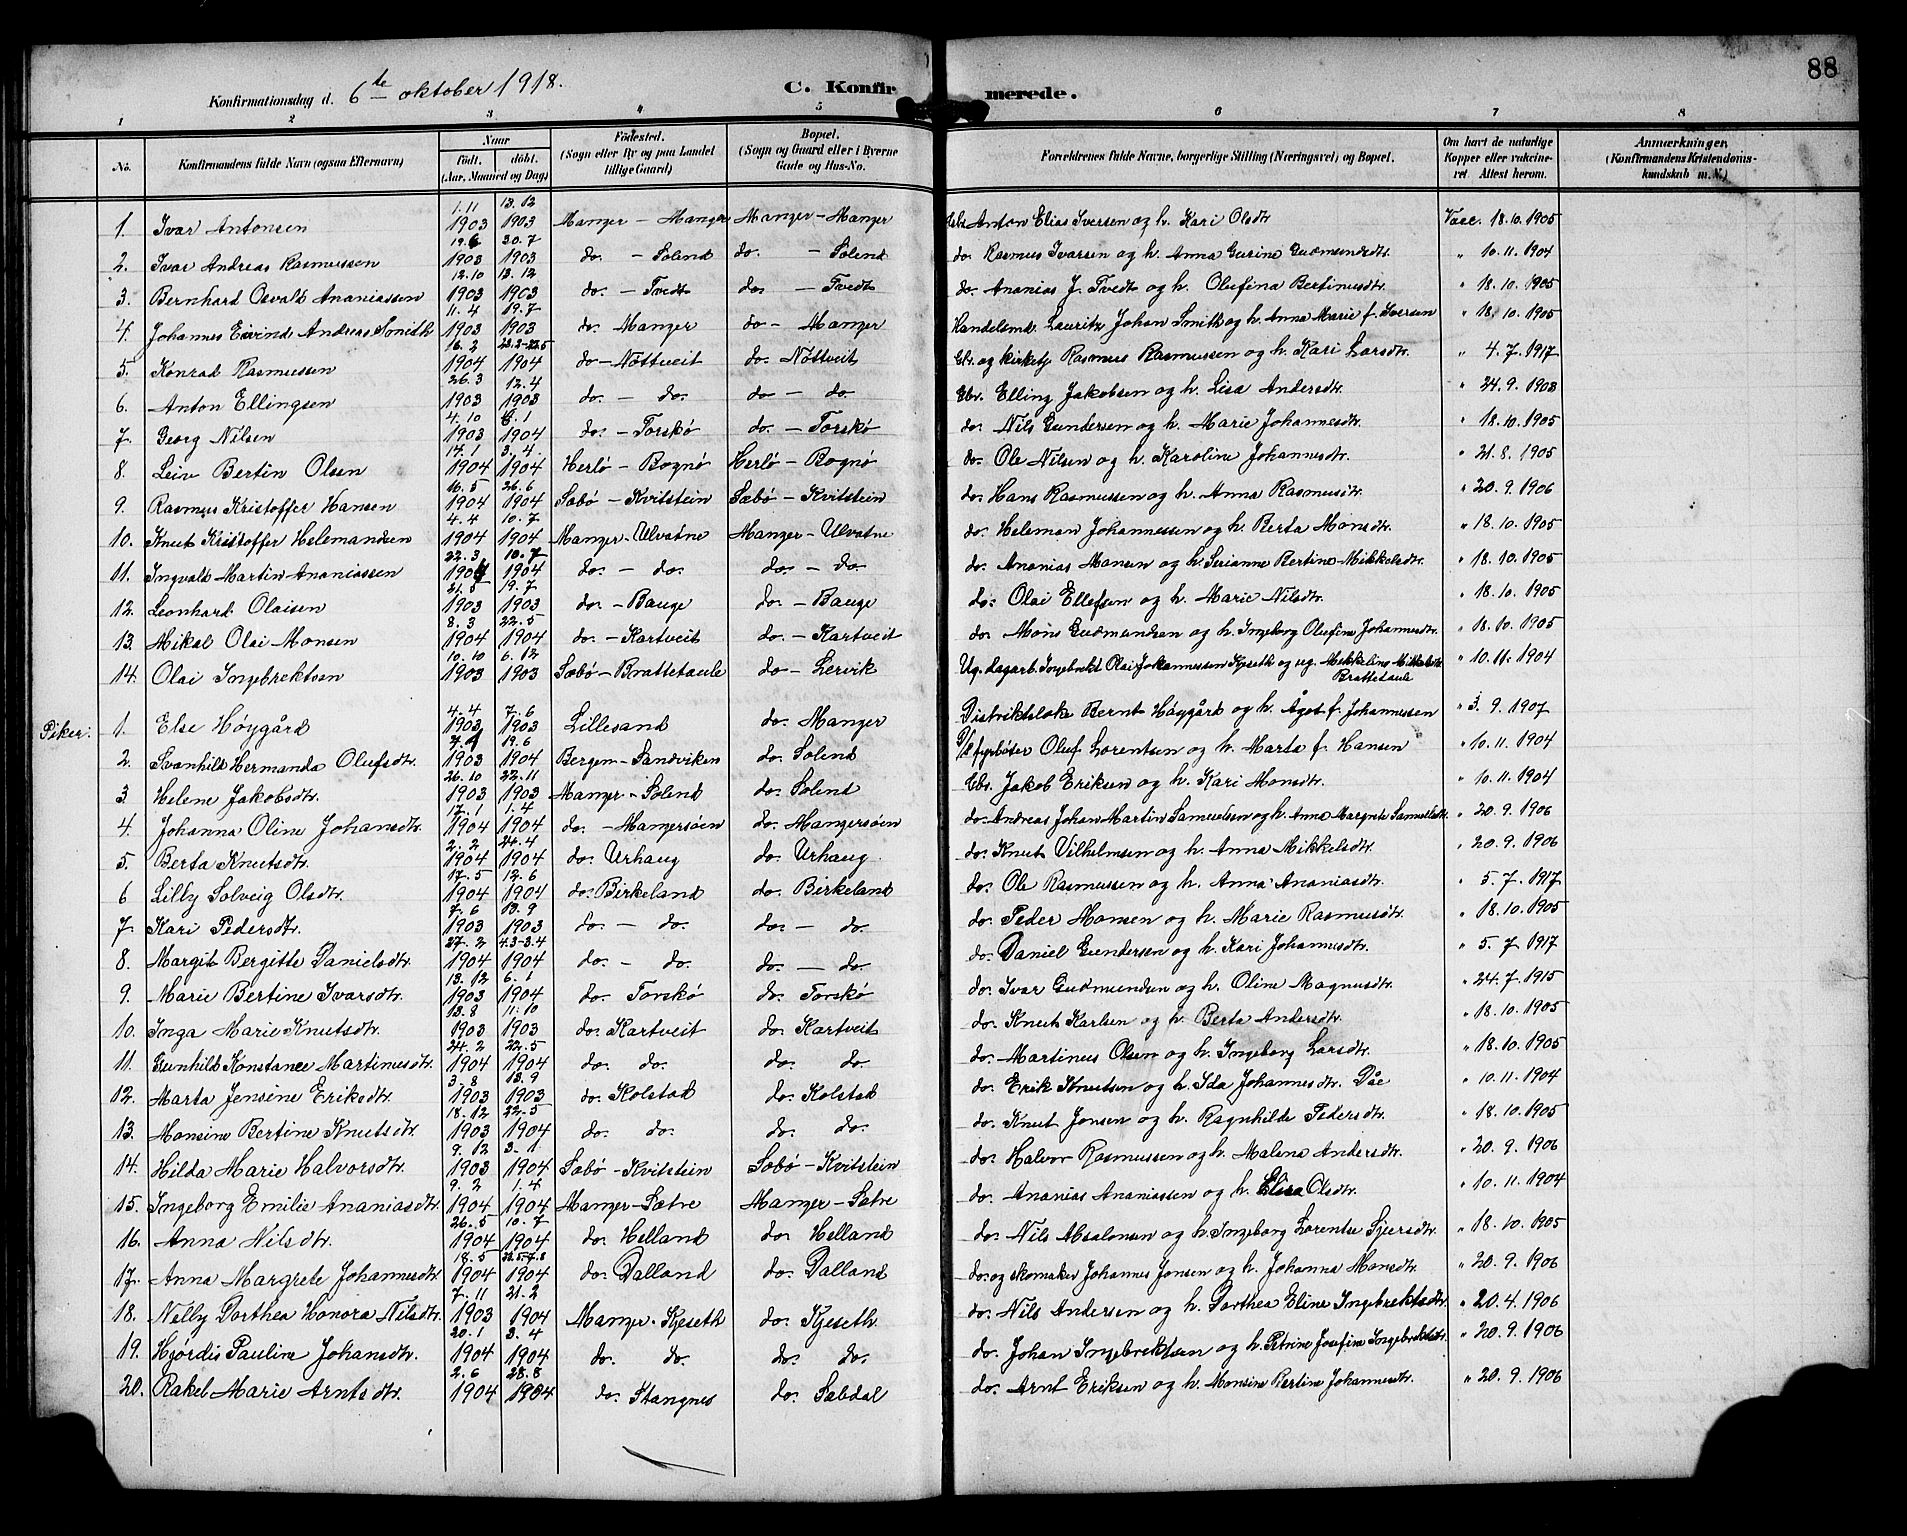 88
Konfirmationsdag d. 6te oktober 1918. C. Konfirmerede.
1 2 3 4 5 6 7 8
No. Konfirmandens fulde Navn (ogsaa Efternavn) Naar født. døbt. (Aar, Maaned og Dag) Fødested. (Sogn eller By og paa Landet tillige Gaard) Bopæl. (Sogn og Gaard eller i Byerne Gade og Hus-No. Forældrenes fulde Navne, borgerlige Stilling (Næringsvei) og Bopæl. Om havt de naturlige Kopper eller vaccineret. Attest herom. Anmærkninger. (Konfirmandens Kristendomskundskab m. V.)
1. Ivar Antonsen 1.11 1903 13.12 1903 Manger - Manger Manger - Manger Gbr. Anton Elias Iversen og h. Kari Olsdtr Vacc. 18.10.1905
2. Ivar Andreas Rasmussen 19.6 1903 30.7 1903 do. - Solend do. - Solend do. Rasmus Ivarsen og h. Anna Gurine Gudmundsdtr. " 10.11.1904
3. Bernhard Osvald Ananiassen 12.10 1903 13.12 1903 do. - Tvedt do - Tvedt do. Ananias J. Tvedt og h. Olufina Bertinusdtr. " 18.10.1905
4. Johannes Eivind Andreas Smedth 11.4 1903 19.7 1903 do. Manger do - Manger Handelsmd. Lauritz Johan Smith og h. Anna Marie f. Iversen " 18.10.1905
5. Konrad Rasmussen 16.2 1904 22.2-22.5 1904 do - Nøttveit do. Nøttveit Gbr. og kirketj. Rasmus Rasmussen og h. Kari Larsdtr. " 4.7.1917
6. Anton Ellingsen 26.3 1903 12.4 1903 do. - do. do - do Gbr. Elling Jakobsen og h. Lisa Andersdtr. " 24.9.1903
7. Georg Nilsen 4.10 1903 6.1 1904 do. - Torskø do. - Torskø do. Nils Gundersen og h. Marie Johannesdtr. " 18.10.1905
8. Leiv Bertin Olsen 14.1 1904 3.4 1904 Herlø - Bognø Herlø - Bognø do. Ole Nilsen og h. Karoline Johannesdtr. " 21.8.1905
9. Rasmus Kristoffer Hansen 16.5 1904 26.6 1904 Sæbø - Kvitstein Sæbø - Kvitstein do. Hans Rasmussen og h. Anna Rasmusdtr. " 20.9.1906
10. Knut Kristoffer Helemandsen 4.4 1904 10.7 1904 Manger - Ulvatne Manger - Ulvatne do. Heleman Johannessen og h. Berta Monsdtr. " 18.10.1905
11. Ingvald Martin Ananiassen 22.3 1904 10.7 1904 do. - do. do. - do. do. Ananias Monsen og h. Serianne Bertine Mikkelsdtr. " 18.10.1905
12. Leonhard Olaisen 21.5 1903 19.7 1903 do. - Bauge do. - Bauge do. Olai Ellefsen og h. Marie Nilsdtr. " 18.10.1905
13. Mikal Olai Monsen 8.3 1904 22.5 1904 do. - Kartveit do. - Kartveit do. Mons Gudmundsen og h. Ingeborg Olufine Johannesdtr. " 18.10.1905
14. Olai Ingebrektsen 10.10 1903 6.12 1903 Sæbø - Brattetaule do - Lervik Ug. dagarb. Ingebrekt Olai Johannessen Kjeseth og ug. Mikkeline Mikkelsdtr. Brattetaule " 10.11.1904
Piker:
1. Else Høygård 4.4 1903 7.6 1903 Lillesand do. Manger Distriktsleke Bernt Høygård og h. Ågot f. Johannessen " 3.9.1907
2. Svanhild Hermanda Olufsdtr. 1903 19.6 1904 Bergen - Sandviken do. Solend D/s fyrbøter Oluf Lorentsen og h. Marta f. Hansen " 10.11.1904
3 Helene Jakobsdtr. 26.10 1903 22.11 1903 Manger - Solend do. Solend Gbr. Jakob Eriksen og h. Kari Monsdtr. " 10.11.1904
4. Johanna Oline Johansdtr. 17.1 1904 1.4 1904 do. - Mangersøen do. Mangersøen do. Andreas Johan Martin Samuelsen og h. Anna Margrete Samuelsdtr. " 20.9.1906
5 Berta Knutsdtr. 2.2 1904 24.4 1904 do. Urhaug do. Urhaug do. Knut Vilhelmsen og h. Anna Mikkelsdtr. " 20.9.1906
6 Lilly Solveig Olsdtr. 17.5 1904 12.6 1904 do. Birkeland do. Birkeland do. Ole Rasmussen og h. Anna Ananiasdtr. " 5.7.1917
7. Kari Pedersdtr. 7.6 1903 13.9 1903 do. - do. do. - do. do. Peder Monsen og h. Marie Rasmusdtr. " 18.10.1905
8. Margit Bergitte Danielsdtr. 27.2 1904 4.3-3.4 1904 do. - do. do. - do do. Daniel Gundersen og h. Kari Johannesdtr. " 5.7.1917
9. Marie Bertine Ivarsdtr. 13.12 1903 6.1 1904 do. Torskø do. Torskø do. Ivar Gudmundsen og h. Oline Magnusdtr. " 24.7.1915
10. Inga Marie Knutsdtr. 13.8 1903 11.10 1903 do. Kartveit do. Kartveit do. Knut Karlsen og h. Berta Andersdtr. " 18.10.1905
11. Gunhild Konstance Martinusdtr. 24.2 1904 22.5 1904 do. do. do. do. do. Martinus Olsen og h. Ingeborg Larsdtr. " 18.10.1905
12. Marta Jensine Eriksdtr. 3.8 1903 13.9 1903 do. Kolstad do. Kolstad do. Erik Knutsen og h. Ida Johannesdtr. Dåe " 10.11.1904
13. Monsine Bertine Knutsdtr. 18.12 1903 22.5 1904 do. do. do. do. do. Knut Jonsen og h. Ragnhilde Pedersdtr. " 18.10.1905
14. Hilda Marie Halvorsdtr. 9.12 1903 3.1 1904 Sæbø - Kvitstein Sæbø - Kvitstein do. Halvor Rasmussen og h. Malena Andersdtr. " 20.9.1906
15. Ingeborg Emilie Ananiasdtr. 9.2 1904 1.4 1904 Manger - Sætre Manger - Sætre do. Ananias Ananiassen og h. Elisa Olsdtr. " 10.11.1904
16. Anna Nilsdtr. 26.5 1904 10.7 1904 do. Helland do. Helland do. Nils Absalonsen og h. Ingeborg Lorentse Sjursdtr. " 18.10.1905
17. Anna Margrete Johannesdtr 18.5 1904 22.5-7.8 1904 do. Dalland do. Dalland do. og skomaker Johannes Jonsen og h. Johanna Monsdtr. " 20.9.1906
18. Nelly Dorthea Honora Nilsdtr. 7.11 1903 21.2 1904 Manger - Kjeseth do. Kjeseth do. Nils Andersen og h. Dorthea Eline Ingebrektsdtr. " 20.4.1906
19. Hjørdis Pauline Johansdtr. 20.1 1904 3.4 1904 do. do. do. do. do. Johan Ingebrektsen og h. Petrine Josefine Ingebrektsdtr. " 20.9.1906
20. Rakel Marie Arntsdtr. 2.6 1904 28.8 1904 do. Stangnes do. Sæbdal do. Arnt Eriksen og h. Monsine Bertine Johannesdtr. " 20.9.1906